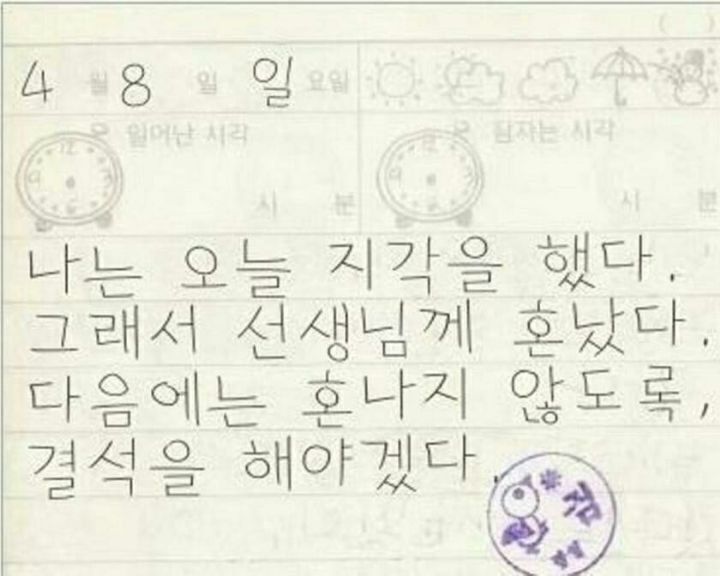 4 월 8 일 일 요일
일어난 시각 잠자는 시각
시 분 시 분
나는 오늘 지각을 했다.
그래서 선생님께 혼났다.
다음에는 혼나지 않도록,
결석을 해야겠다.